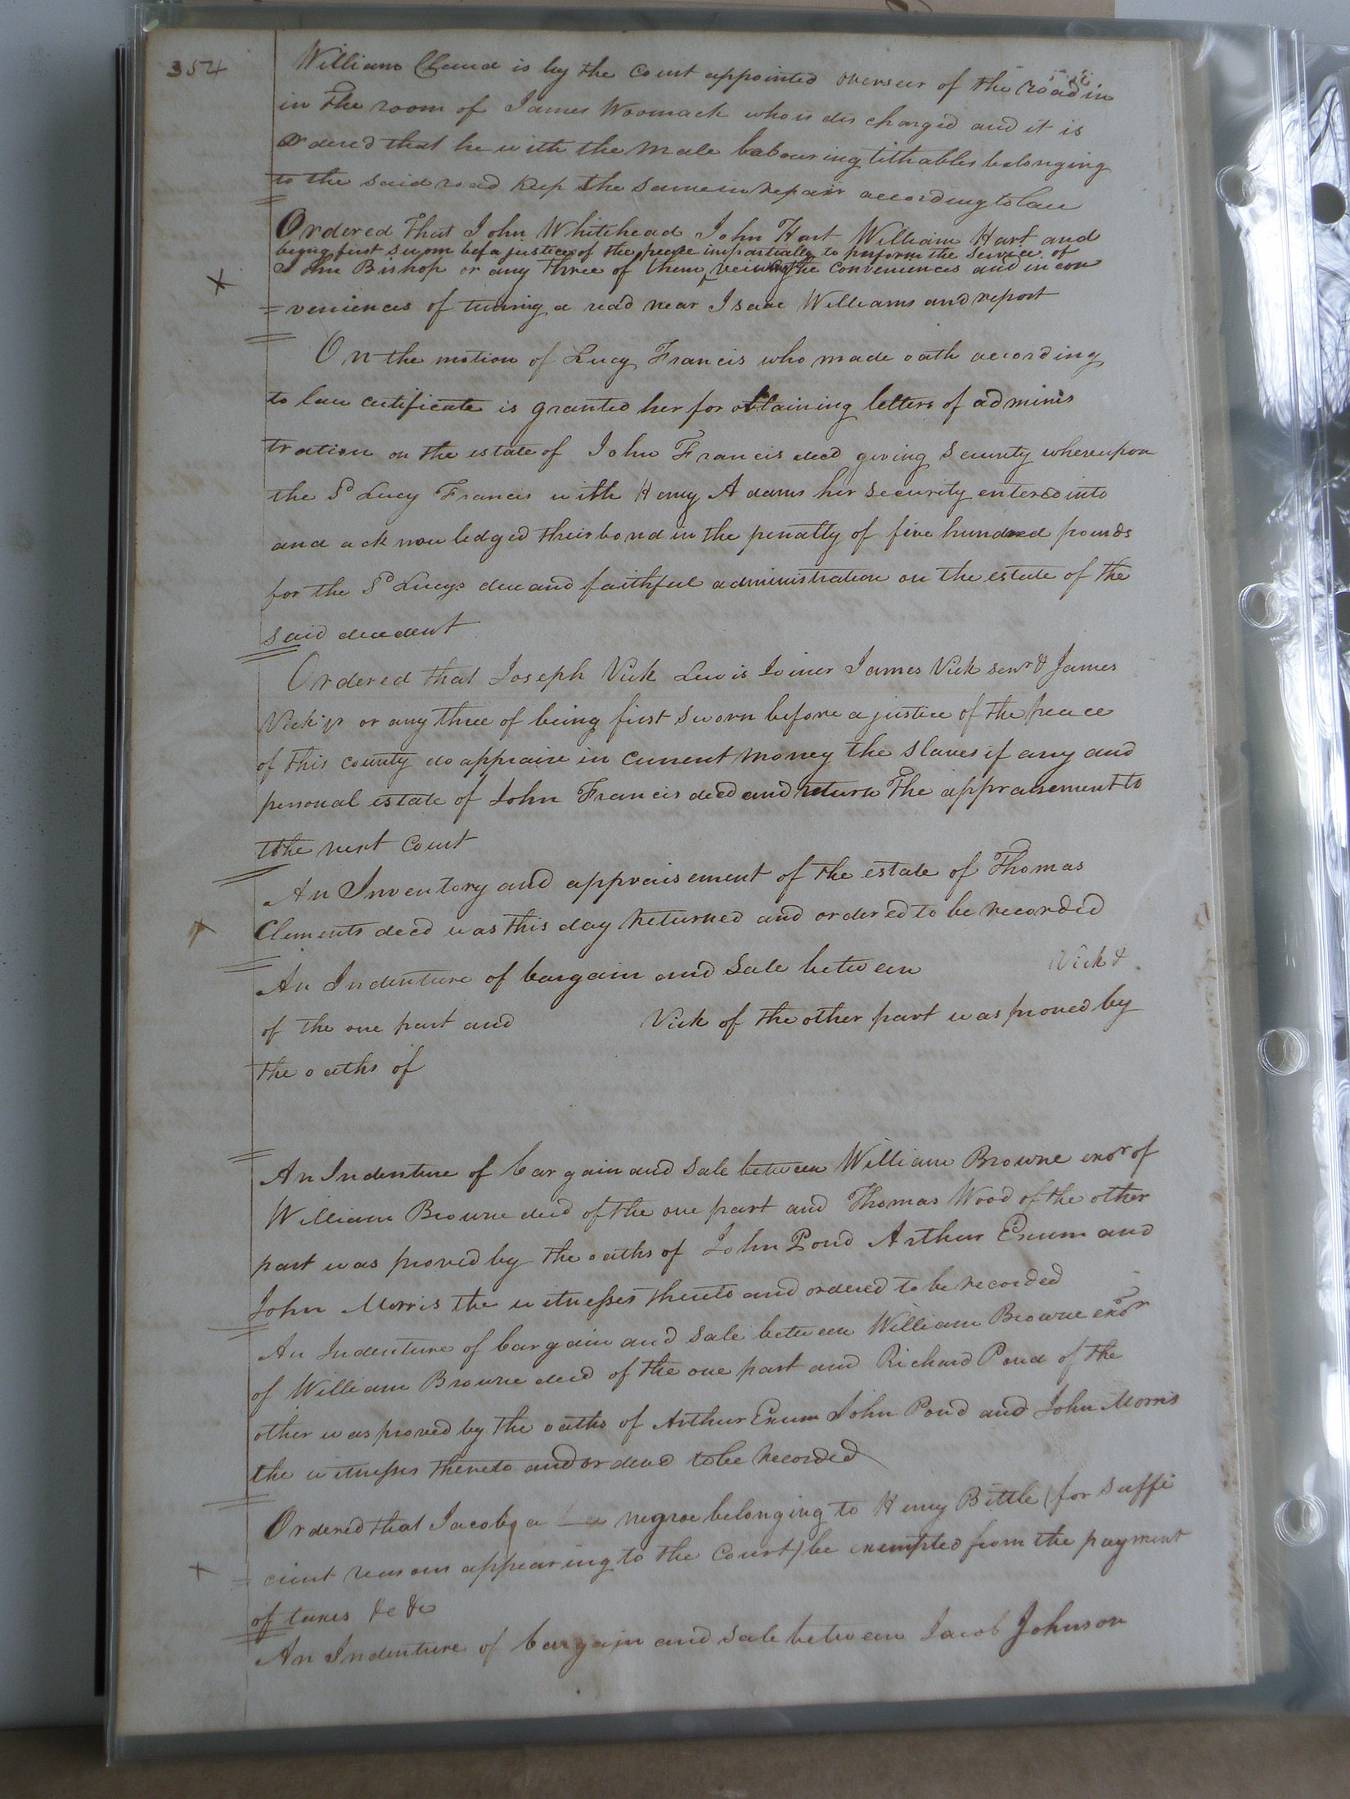 354
William Claud is by the Court appointed overseer of the road in
in the room of James Woomack who is dis charged and it is
Ordered that he with the Male labouring tithables belonging
to the said road keep the same in repair according to law
Ordered That John Whitehead John Hart William Hart and
being first sworn bef a justice of the peace impartially to perform the service of
John Bishop or any three of them, veiw the conveniences and incon
=veniences of turning a road near Isaac Williams and report
On the motion of Lucy Francis who made oath according
to law certificate is granted her for obtaining letters of adminis
tration on the estate of John Francis decd giving Security whereupon
the Sd Lucy Francis with Henry Adams her security entered into
and acknowledged their bond in the penalty of five hundred pounds
for the Sd Lucys due and faithful administration on the estate of the
said decedent
Ordered that Joseph Vick Lewis Joiner James Vick senr & James
Vick jr or any three of being first sworn before a justice of the peace
of this county do appraise in Current money the slaves if any and
personal estate of John Francis decd and return The appraisement to
the next Court
An Inventory and appraisement of the estate of Thomas
Clements decd was this day returned and ordered to be recorded
An Indenture of bargain and sale between Vick &
of the one part and Vick of the other part was proved by
the oaths of
An Indenture of bargain and sale between William Browne exor of
William Browne decd of the one part and Thomas Wood of the other
part was proved by the oaths of John Pond Arthur Exum and
John Morris the witnesses thereto and ordered to be recorded
An Indenture of bargain and sale between William Browne exor
of William Browne decd of the one part and Richard Pond of the
other was proved by the oaths of Arthur Exum John Pond and John Morris
the witnesses thereto and ordered to be recorded
Ordered that Jacob a negroe belonging to Henry Bittle (for suffi
cient reasons appearing to the Court) be exempted from the payment
of taxes &c &c
An Indenture of bargain and sale between Jacob Johnson